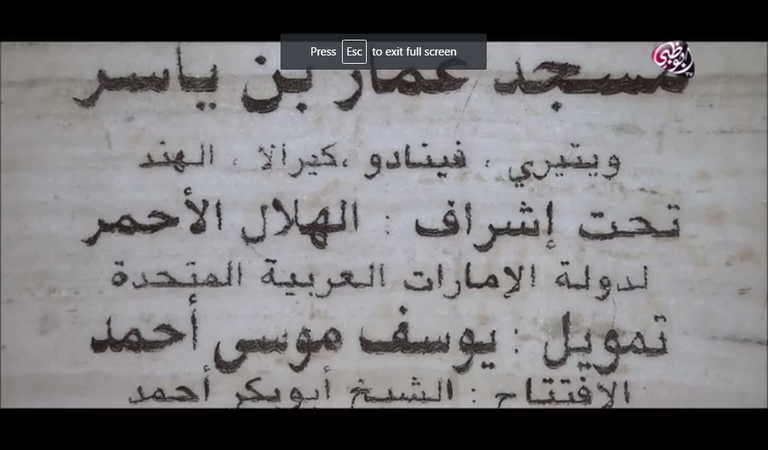 Press Esc to exit full screen
أبوظبي
مسجد عمار بن ياسر
ويتيري ، فينادو ،كيرالا ، الهند
تحت إشراف : الهلال الأحمر
لدولة الإمارات العربية المتحدة
تمويل : يوسف موسى أحمد
الإفتتاح : الشيخ أبوبكر أحمد